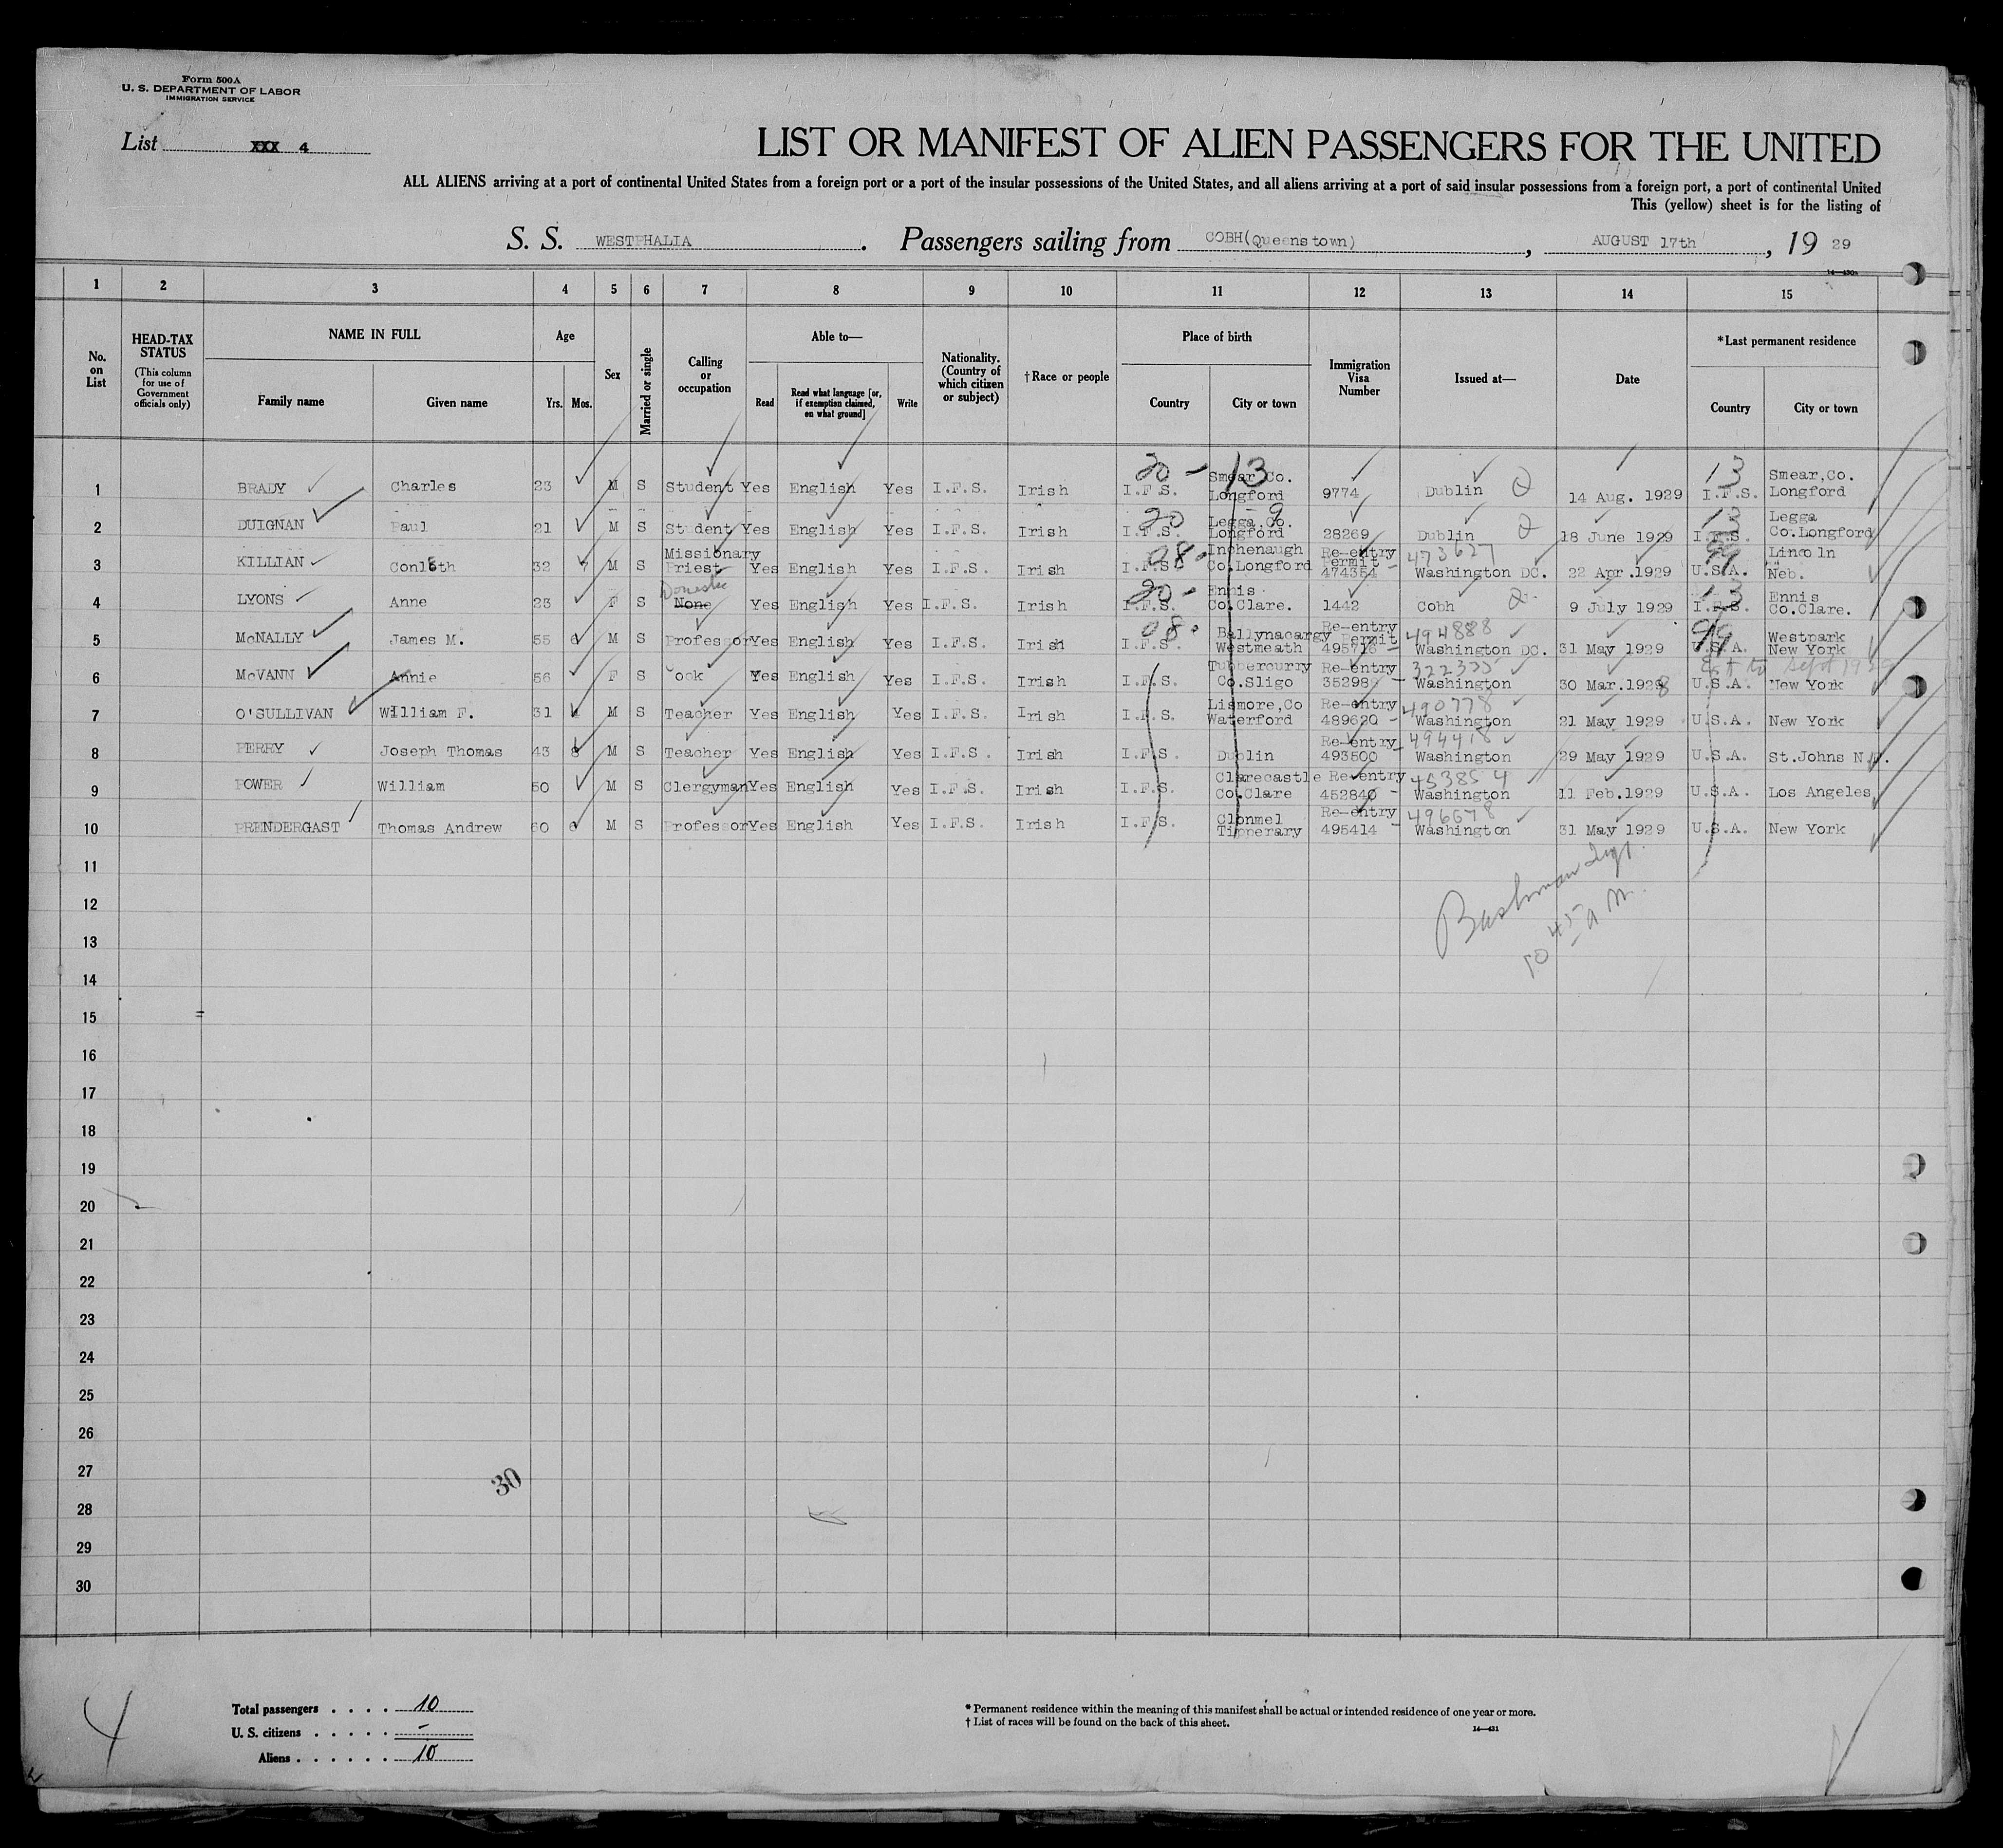 Form 500A
U. S. DEPARTMENT OF LABOR
IMMIGRATION SERVICE
List XXX 4
LIST OR MANIFEST OF ALIEN PASSENGERS FOR THE UNITED
ALL ALIENS arriving at a port of continental United States from a foreign port or a port of the insular possessions of the United States, and all aliens arriving at a port of said insular possessions from a foreign port, a port of continental United
This (yellow) sheet is for the listing of
S. S. WESTPHALIA. Passengers sailing from COBH(Queenstown), AUGUST 17th, 19 29
1 2 3 4 5 6 7 8 9 10 11 12 13 14 15
No. on List
HEAD-TAX STATUS
(This column for use of Government officials only)
NAME IN FULL
Family name Given name
Age
Yrs. Mos.
Sex
Married or single
Calling or occupation
Able to—
Read Read what language [or, if exemption claimed, on what ground] Write
Nationality. (Country of which citizen or subject)
†Race or people
Place of birth
Country City or town
Immigration Visa Number
Issued at—
Date
*Last permanent residence
Country City or town
1 BRADY Charles 23 M S Student Yes English Yes I.F.S. Irish 20 - 13 I.F.S. Smear Co. Longford 9774 Dublin 14 Aug. 1929 13 I.F.S. Smear,Co. Longford
2 DUIGNAN Paul 21 M S Student Yes English Yes I.F.S. Irish 20 - 9 I.F.S. Legga,Co. Longford 28269 Dublin 18 June 1929 13 I.F.S. Legga Co.Longford
3 KILLIAN Conleth 32 M S Missionary Priest Yes English Yes I.F.S. Irish 08 I.F.S. Inchenaugh Co.Longford Re-entry Permit 474354 473627 Washington DC. 22 Apr.1929 99 U.S.A. Lincoln Neb.
4 LYONS Anne 23 F S Domestic None Yes English Yes I.F.S. Irish 20 - I.F.S. Ennis Co.Clare. 1442 Cobh 9 July 1929 13 I.F.S. Ennis Co.Clare.
5 McNALLY James M. 55 6 M S Professor Yes English Yes I.F.S. Irish 08 I.F.S. Ballynacargy Westmeath Re-entry Permit 495716 494888 Washington DC. 31 May 1929 99 U.S.A. Westpark New York
6 McVANN Annie 56 F S Cook Yes English Yes I.F.S. Irish I.F.S. Tubbercurry Co.Sligo Re-entry 352989 322375 Washington 30 Mar.1928 Ext to Sept 1929 U.S.A. New York
7 O'SULLIVAN William F. 31 4 M S Teacher Yes English Yes I.F.S. Irish I.F.S. Lismore,Co Waterford Re-entry 489620 490778 Washington 21 May 1929 U.S.A. New York
8 PERRY Joseph Thomas 43 8 M S Teacher Yes English Yes I.F.S. Irish I.F.S. Dublin Re-entry 493500 494418 Washington 29 May 1929 U.S.A. St.Johns N.F.
9 POWER William 50 M S Clergyman Yes English Yes I.F.S. Irish I.F.S. Clarecastle Co.Clare Re-entry 452840 453854 Washington 11 Feb.1929 U.S.A. Los Angeles
10 PRENDERGAST Thomas Andrew 60 6 M S Professor Yes English Yes I.F.S. Irish I.F.S. Clonmel Tipperary Re-entry 495414 496678 Washington 31 May 1929 U.S.A. New York
11
12
13
14
15
16
17
18
19
20
21
22
23
24
25
26
27
28
29
30
10 45 a M.
30
4
Total passengers . . . . 10
U. S. citizens . . . . . -
Aliens . . . . . . 10
* Permanent residence within the meaning of this manifest shall be actual or intended residence of one year or more.
† List of races will be found on the back of this sheet.
14—431